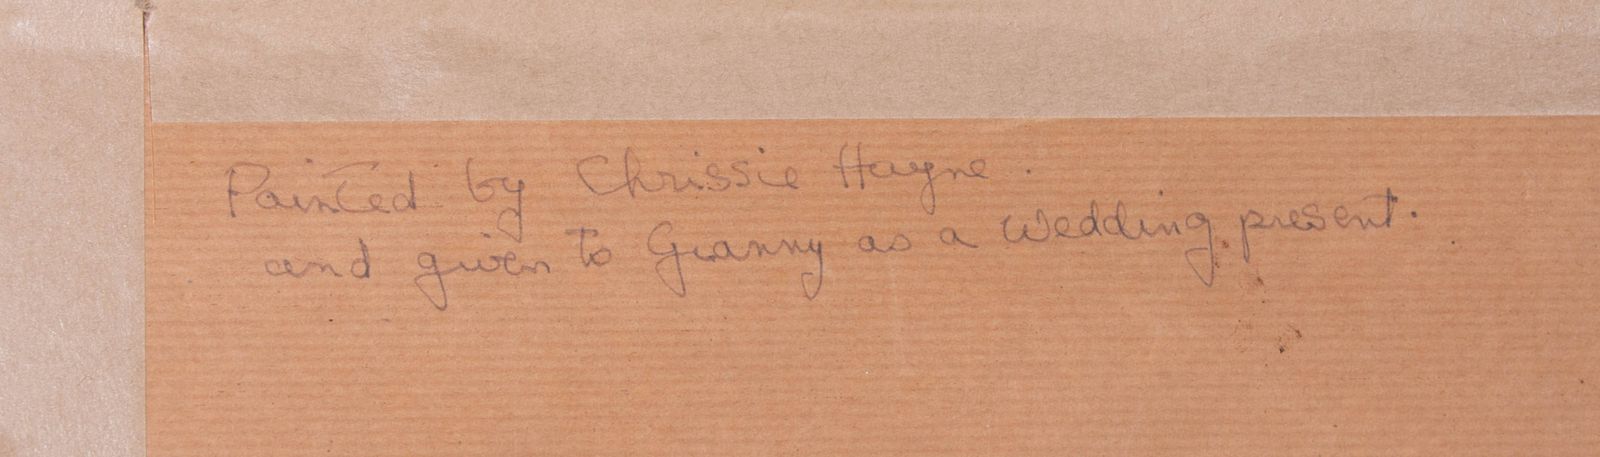 Painted by Chrissie Hayne.
and given to Granny as a wedding present.